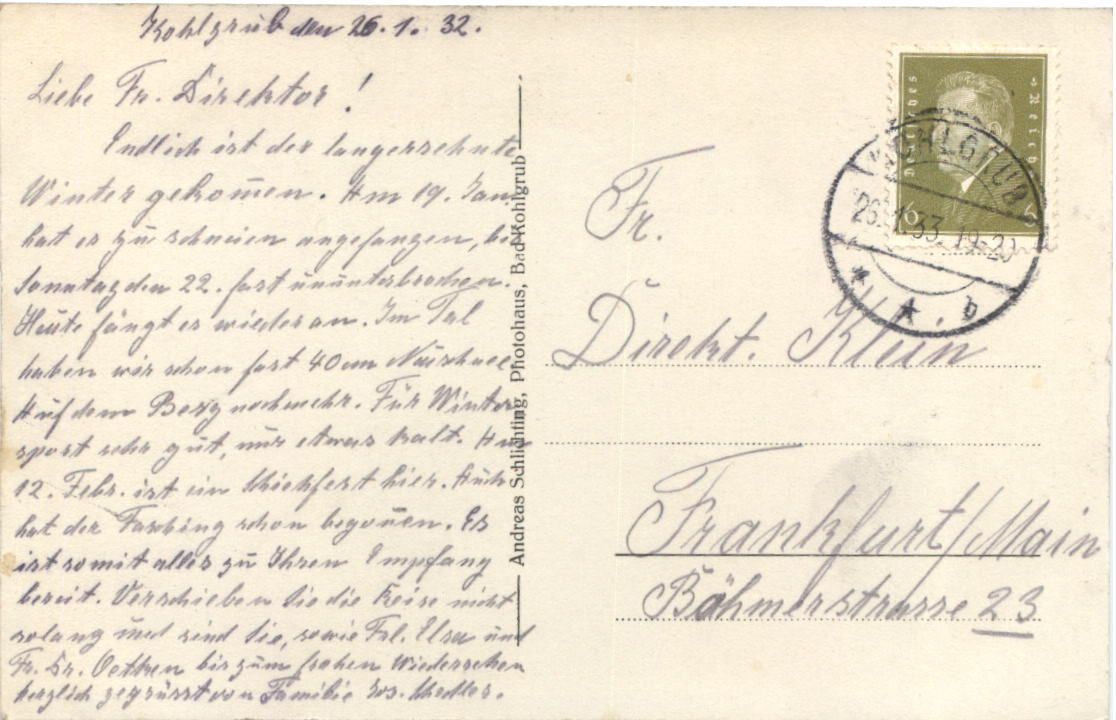 Kohlgrub den 26.1. 32.
Liebe Fr. Direktor!
Endlich ist der langersehnte
Winter gekom̄en. Am 19. Jan.
hat es zu schneien angefangen, bis
Sonntag den 22. fast ununterbrochen.
Heute fängt es wieder an. Im Tal
haben wir schon fast 40 cm Neuschnee
Auf dem Berg noch mehr. Für Winter
sport sehr gut, nur etwas kalt. Am
12. Febr. ist ein Skiehfest hier. Auch
hat der Fasching schon begon̄en. Es
ist somit alles zu Ihren Empfang
bereit. Verschieben Sie die Reise nicht
solang und sind Sie, sowie Frl. Elsa und
Fr. Dr. Oetken bis zum frohen Wiedersehen
herzlich gegrüsst von Familie Jos.
Andreas Schlichting, Photohaus, Bad Kohlgrub
Deutsches Reich
6 6
KOHLGRUB
26.1.33. 19-20
* * b
Fr.
Direkt. Klein
Frankfurt/Main
Böhmerstrasse 23